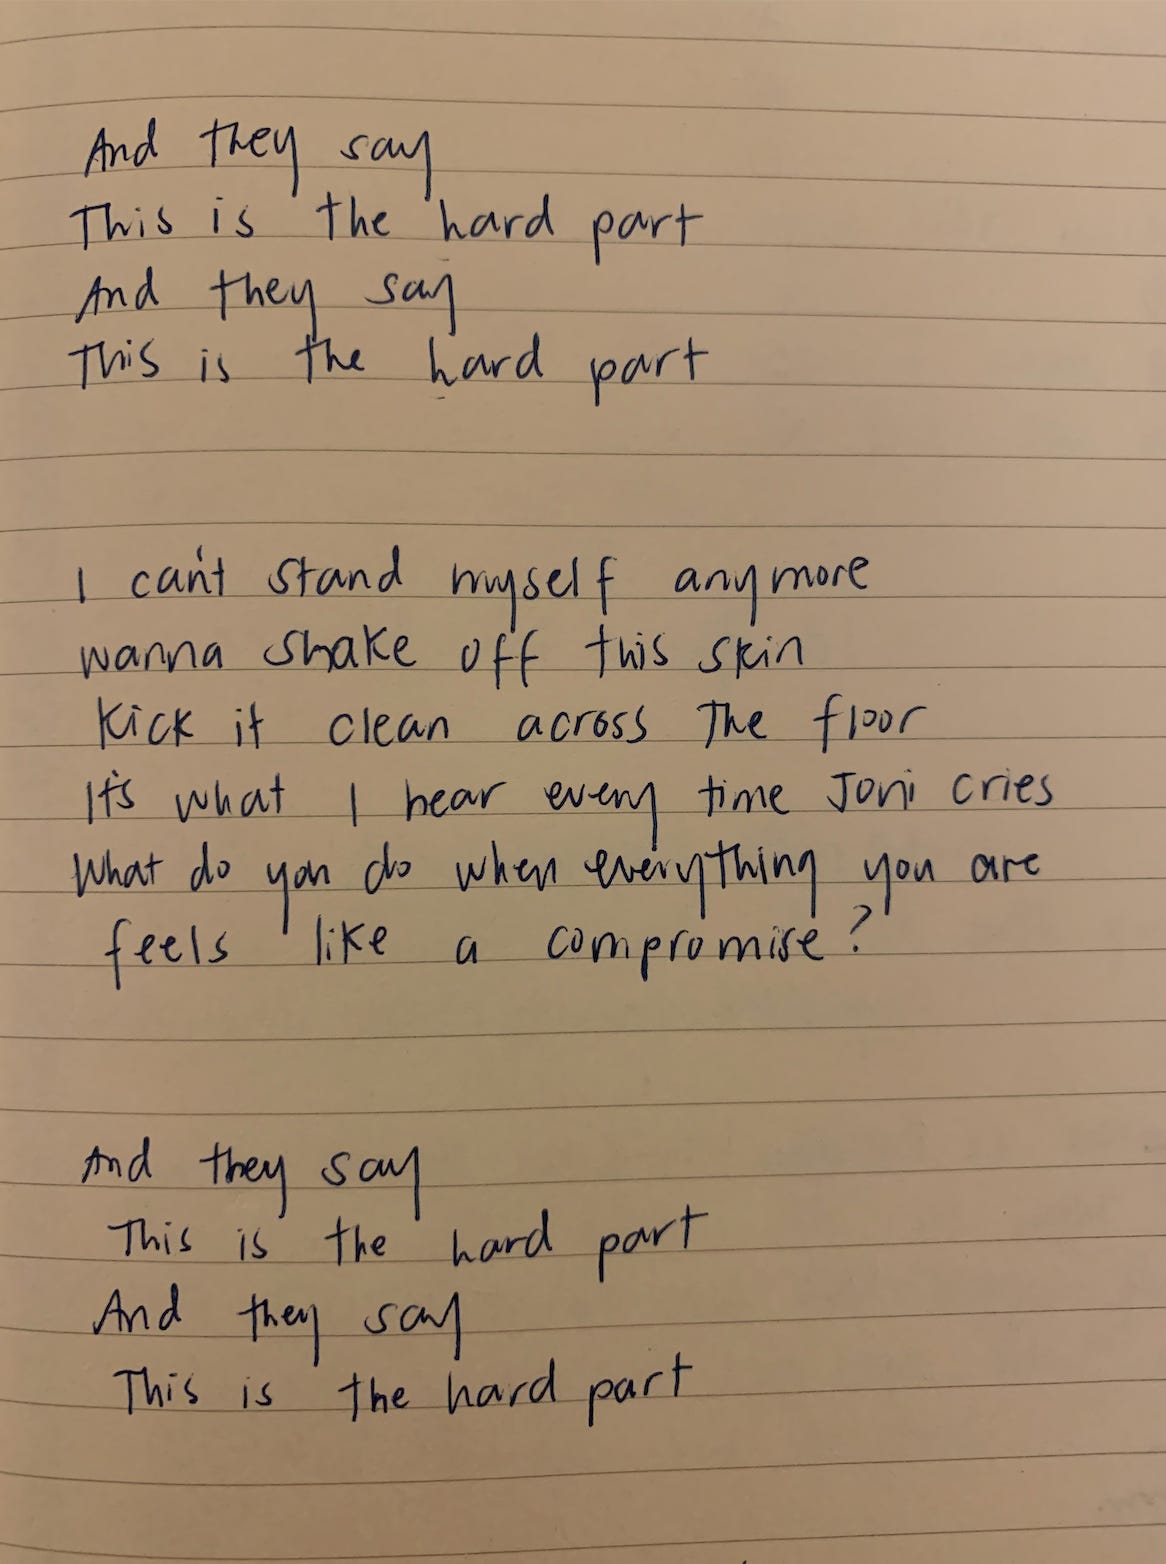 And they say
This is the hard part
And they say
This is the hard part
I can't stand myself anymore
wanna shake off this skin
Kick it clean across the floor
It's what I hear every time Joni cries
What do you do when everything you are
feels like a compromise?
And they say
This is the hard part
And they say
This is the hard part